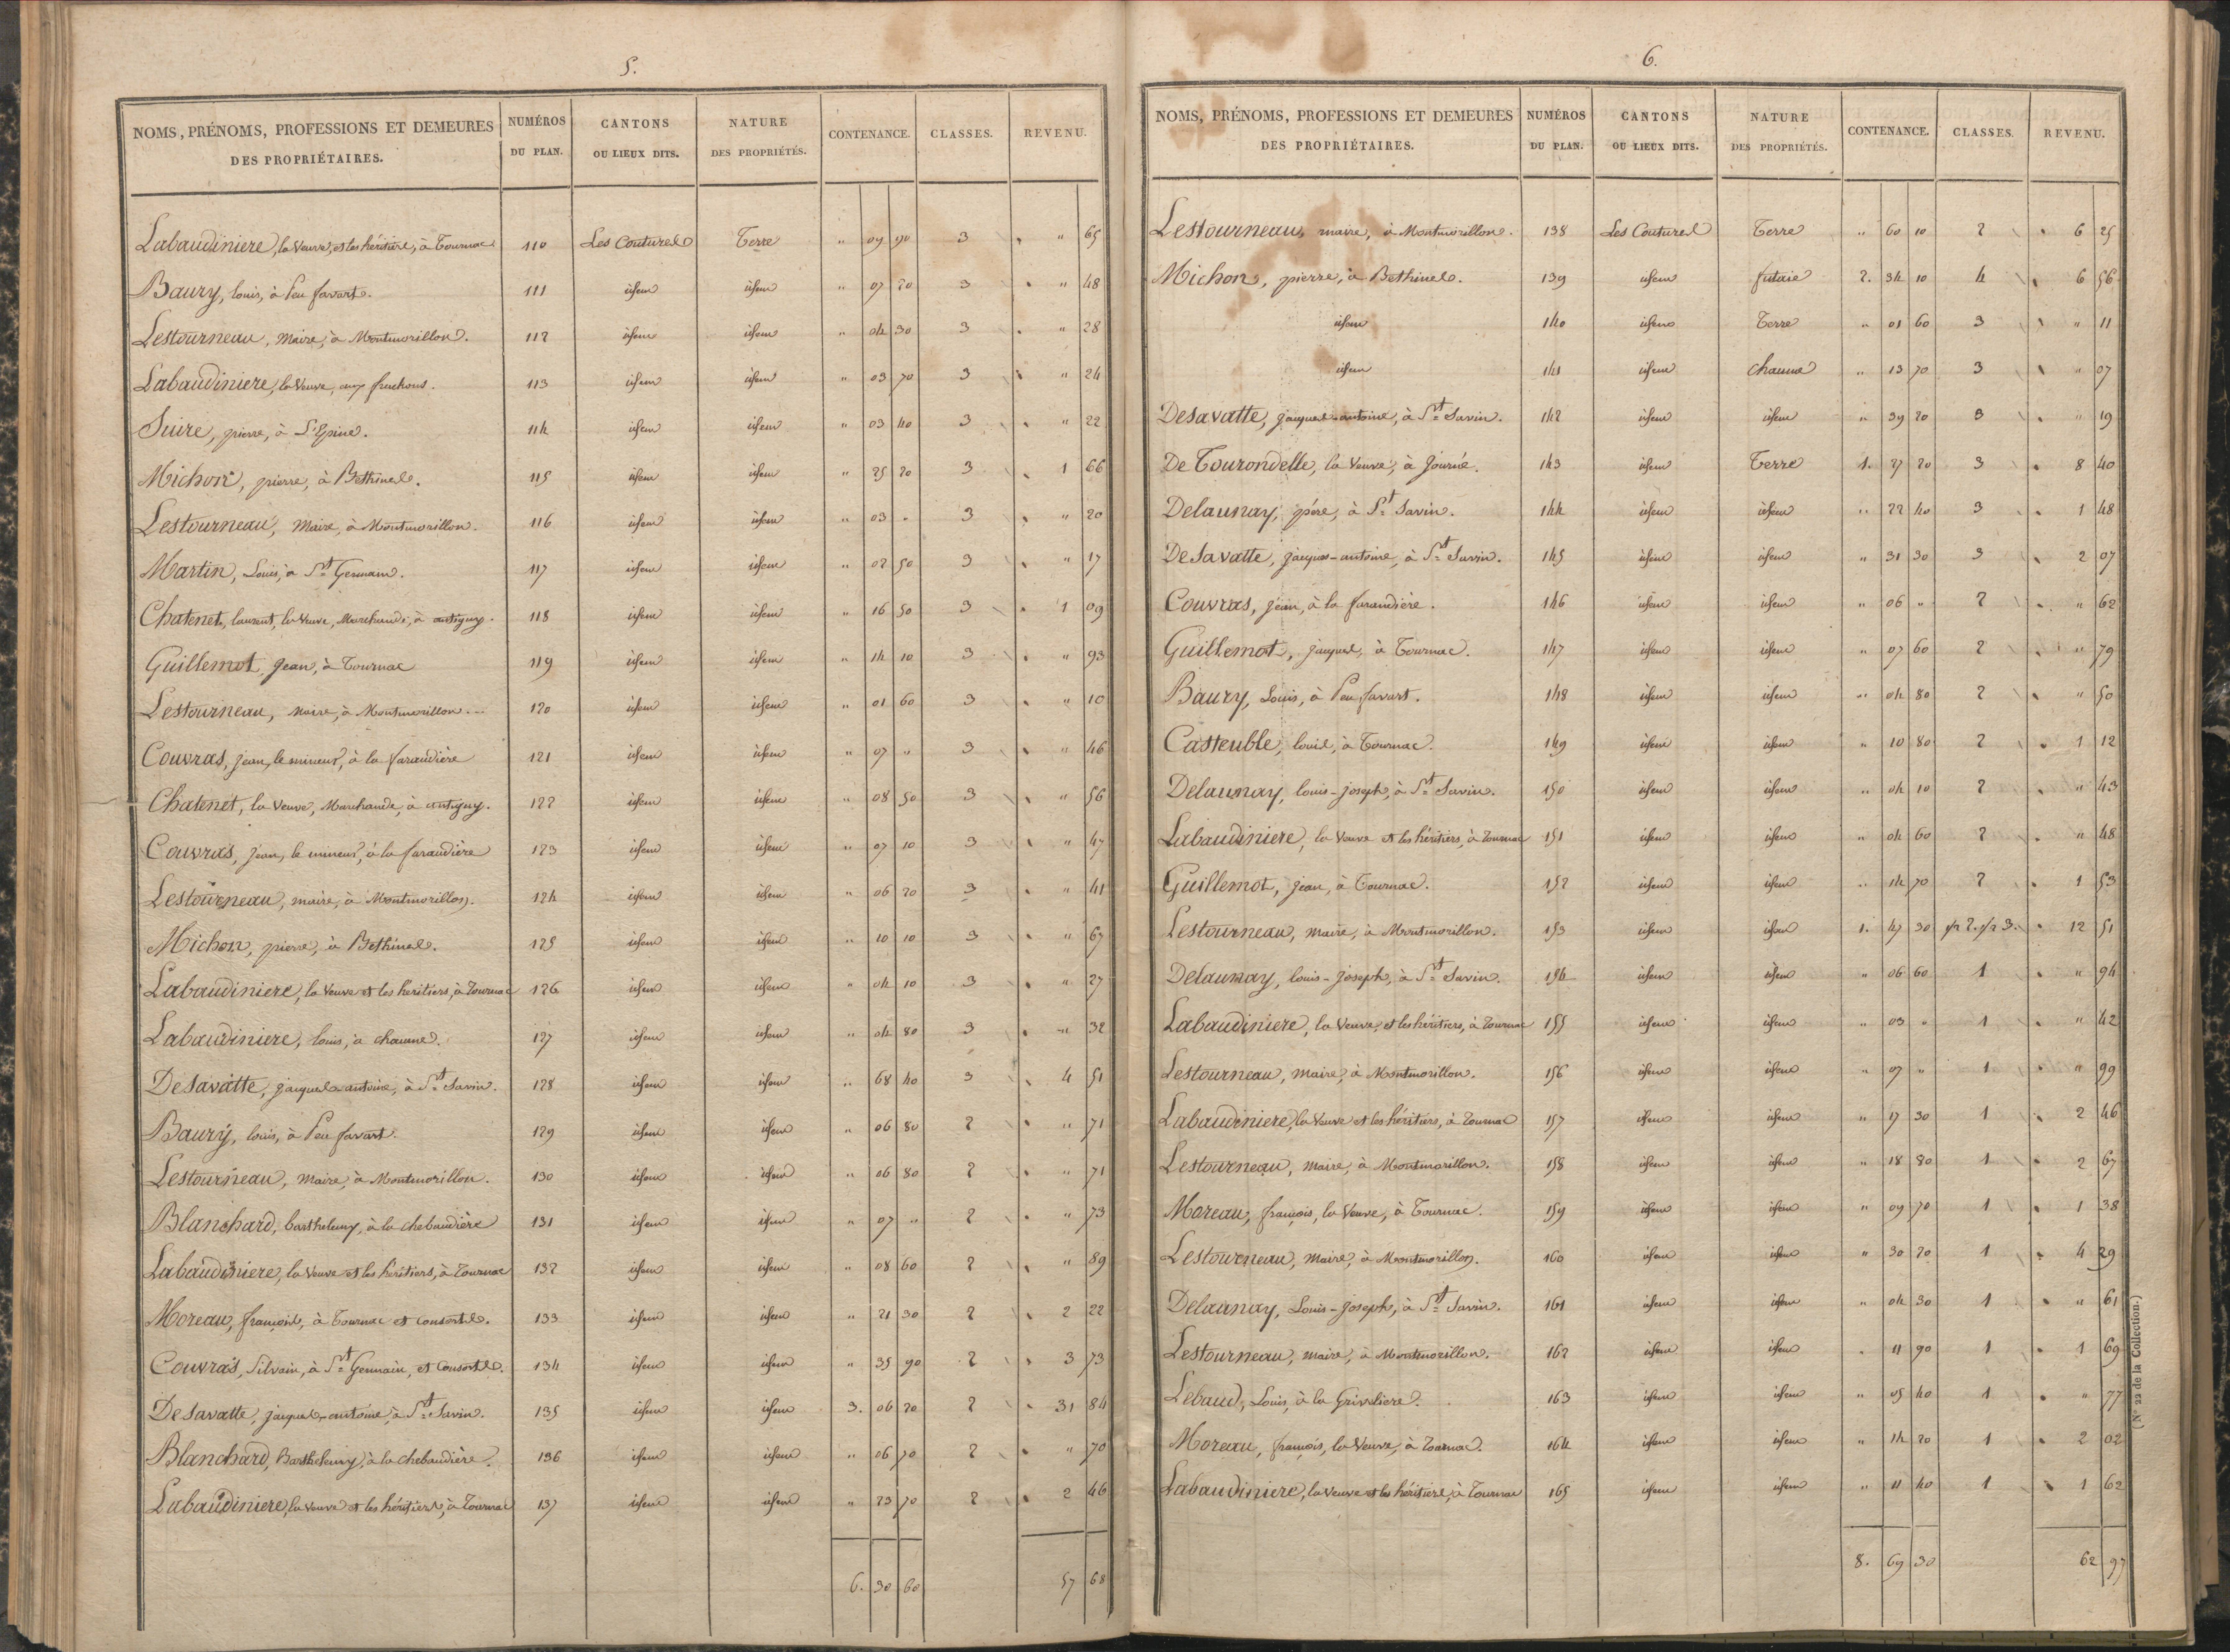 5.
NOMS, PRÉNOMS, PROFESSIONS ET DEMEURES DES PROPRIÉTAIRES. NUMÉROS DU PLAN. CANTONS OU LIEUX DITS. NATURE DES PROPRIÉTÉS. CONTENANCE. CLASSES. REVENU.
Labaudiniere, la Veuve, et les héritiers, à Tournac 110 Les Coutures Terre " 09 90 3 " 65
Baury, louis, à Peu favart. 111 idem idem " 07 20 3 " 48
Lestourneau, Maire, à Montmorillon. 112 idem idem " 04 30 3 " 28
Labaudiniere, la Veuve, aux fruchons. 113 idem idem " 03 70 3 " 24
Suire, pierre, à L'Epine. 114 idem idem " 03 40 3 " 22
Michon, pierre, à Bethines. 115 idem idem " 25 20 3 1 66
Lestourneau, Maire, à Montmorillon. 116 idem idem " 03 " 3 " 20
Martin, Louis, à St Germain. 117 idem idem " 02 50 3 " 17
Chatenet, laurent, la Veuve, Marchande, à antigny. 118 idem idem " 16 50 3 1 09
Guillemot, Jean, à Tournac 119 idem idem " 14 10 3 " 93
Lestourneau, Maire, à Montmorillon 120 idem idem " 01 60 3 " 10
Couvras, jean, le mineur, à la faraudière 121 idem idem " 07 " 3 " 46
Chatenet, la Veuve, Marchande, à antigny. 122 idem idem " 08 50 3 " 56
Couvras, jean, le mineur, à la faraudière 123 idem idem " 07 10 3 " 47
Lestourneau, maire, à Montmorillon. 124 idem idem " 06 20 3 " 41
Michon, pierre, à Bethines. 125 idem idem " 10 10 3 " 67
Labaudiniere, la Veuve et les héritiers, à Tournac 126 idem idem " 04 10 3 " 27
Labaudiniere, louis, à chaume. 127 idem idem " 04 80 3 " 32
De Savatte, jacques-antoine, à St Savin. 128 idem idem " 68 40 3 4 51
Baury, louis, à Peu favart. 129 idem idem " 06 80 2 " 71
Lestourneau, Maire, à Montmorillon. 130 idem idem " 06 80 2 " 71
Blanchard, barthelemy, à la chebaudière 131 idem idem " 07 " 2 " 73
Labaudiniere, la Veuve et les héritiers, à Tournac 132 idem idem " 08 60 2 " 89
Moreau, françois, à Tournac et consorts. 133 idem idem " 21 30 2 2 22
Couvras, Silvain, à St Germain, et Consorts. 134 idem idem " 35 90 2 3 73
De Savatte, jacques-antoine, à St Savin. 135 idem idem 3. 06 20 2 31 84
Blanchard, Barthelemy, à la chebaudière. 136 idem idem " 06 70 2 " 70
Labaudiniere, la Veuve et les héritiers, à Tournac 137 idem idem " 23 70 2 2 46
6. 30 60 57 68
6.
NOMS, PRÉNOMS, PROFESSIONS ET DEMEURES DES PROPRIÉTAIRES. NUMÉROS DU PLAN. CANTONS OU LIEUX DITS. NATURE DES PROPRIÉTÉS. CONTENANCE. CLASSES. REVENU.
Lestourneau, maire, à Montmorillon. 138 Les Coutures Terre " 60 10 2 6 25
Michon, pierre, à Bethines. 139 idem futaie 2. 34 10 4 6 56
idem 140 idem Terre " 01 60 3 " 11
idem 141 idem chaume " 13 70 3 " 07
De Savatte, jacques-antoine, à St Savin. 142 idem idem " 39 20 3 " 19
De Tourondelle, la Veuve, à Journé. 143 idem Terre 1. 27 20 3 8 40
Delaunay, père, à St Savin. 144 idem idem " 22 40 3 1 48
De Savatte, jacques-antoine, à St Savin. 145 idem idem " 31 30 3 2 07
Couvras, jean, à la faraudière. 146 idem idem " 06 " 2 " 62
Guillemot, jacques, à Tournac. 147 idem idem " 07 60 2 " 79
Baury, Louis, à Peu favart. 148 idem idem " 04 80 2 " 50
Casteuble, louis, à Tournac. 149 idem idem " 10 80 2 1 12
Delaunay, louis-joseph, à St Savin. 150 idem idem " 04 10 2 " 43
Labaudiniere, la Veuve et les héritiers, à Tournac 151 idem idem " 04 60 2 " 48
Guillemot, jean, à Tournac. 152 idem idem " 14 70 2 1 53
Lestourneau, maire, à Montmorillon. 153 idem idem 1. 47 30 p/r 2. p/r 3. 12 51
Delaunay, louis-joseph, à St Savin. 154 idem idem " 06 60 1 " 94
Labaudiniere, la Veuve, et les héritiers, à Tournac 155 idem idem " 03 " 1 " 42
Lestourneau, maire, à Montmorillon. 156 idem idem " 07 " 1 " 99
Labaudiniere, la Veuve et les héritiers, à Tournac 157 idem idem " 17 30 1 2 46
Lestourneau, maire, à Montmorillon. 158 idem idem " 18 80 1 2 67
Moreau, françois, la Veuve, à Tournac. 159 idem idem " 09 70 1 1 38
Lestourneau, Maire, à Montmorillon. 160 idem idem " 30 20 1 4 29
Delaunay, Louis-joseph, à St Savin. 161 idem idem " 04 30 1 " 61
Lestourneau, maire, à Montmorillon. 162 idem idem " 11 90 1 1 69
Lebaud, Louis, à la Griveliere. 163 idem idem " 05 40 1 " 77
Moreau, françois, la Veuve, à Tournac. 164 idem idem " 14 20 1 2 02
Labaudiniere, la veuve et les héritiers, à Tournac 165 idem idem " 11 40 1 1 62
8. 69 30 62 97
(N° 22 de la Collection.)